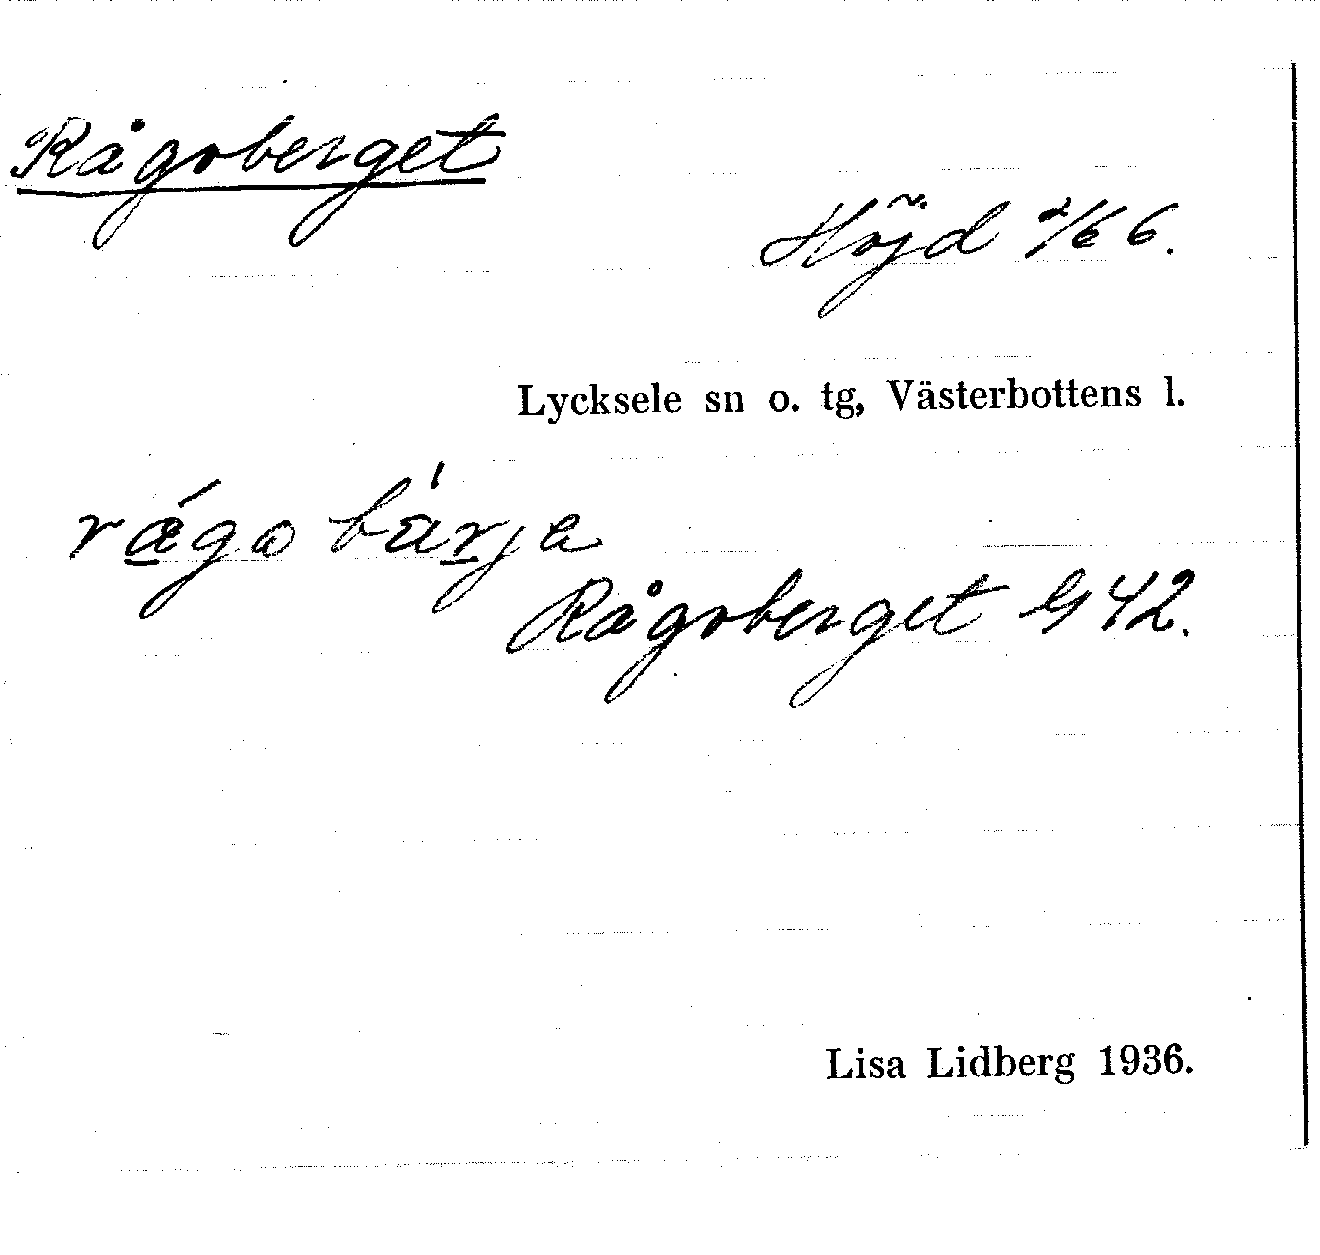 Rågoberget
Höjd 2/6 6.
Lycksele sn o. tg, Västerbottens l.
rǽgo bárja
Rågoberget G 42.
Lisa Lidberg 1936.